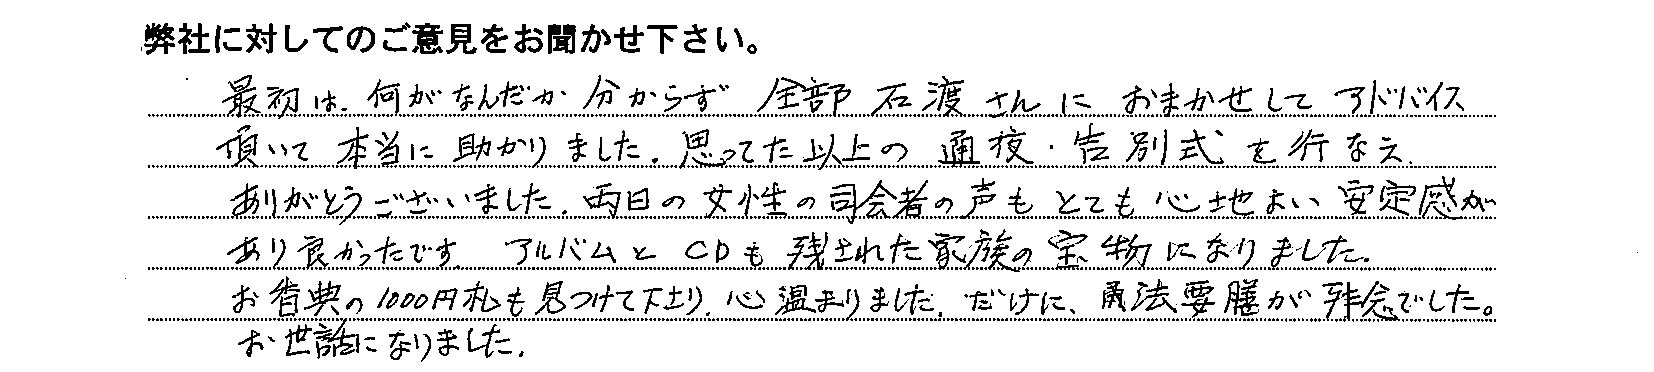 弊社に対してのご意見をお聞かせ下さい。
最初は、何がなんだか分からず 全部 石渡さんに おまかせして アドバイス
頂いて 本当に 助かりました。思ってた以上の 通夜・告別式を行なえ
ありがとうございました。両日の女性の司会者の声も とても 心地よい 安定感が
あり良かったです。 アルバムと CDも 残された家族の宝物になりました。
お香典の1000円札も見つけて下さり、心温まりました。だけに、法要膳が残念でした。
お世話になりました。